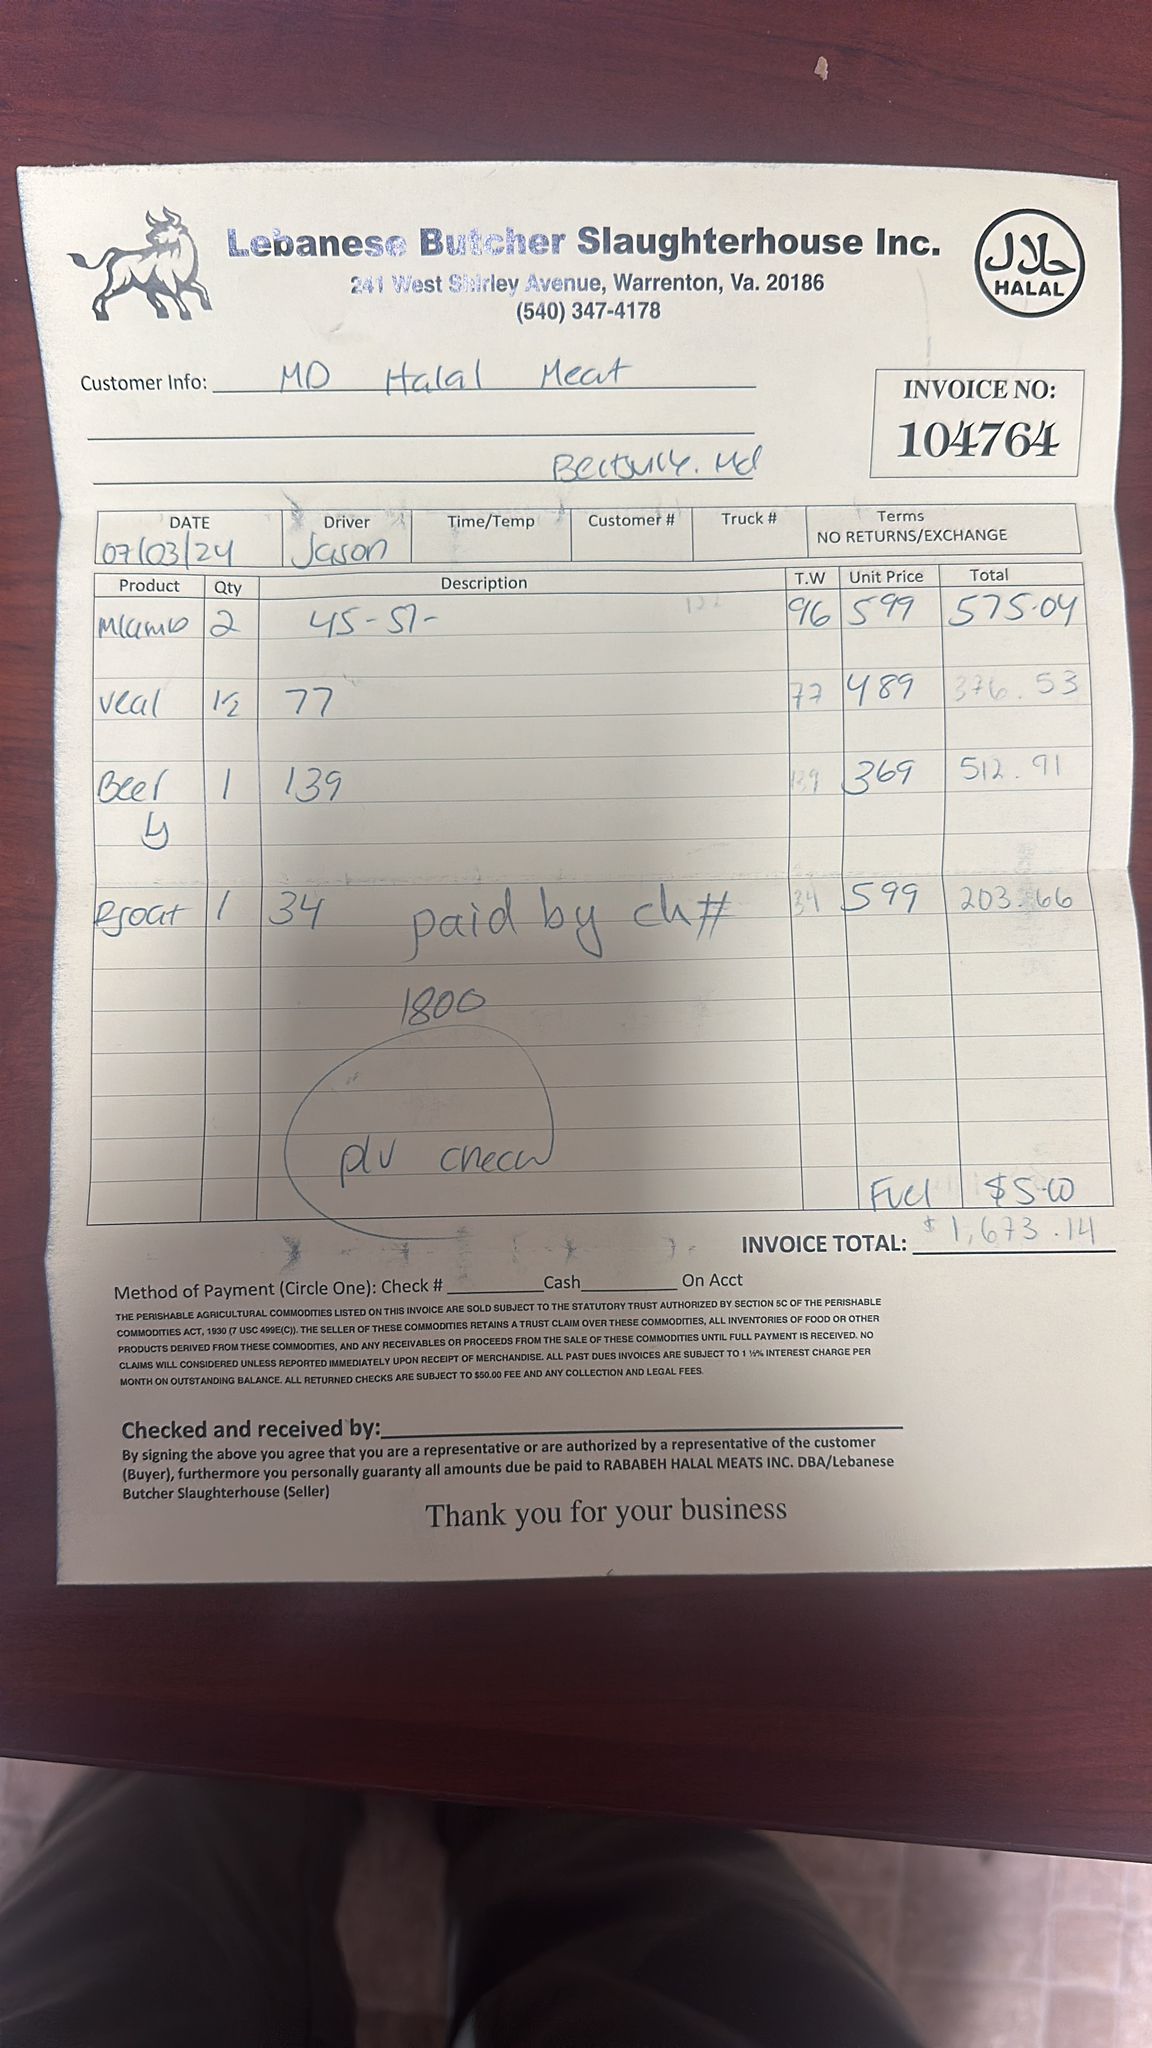 Lebanese Butcher Slaughterhouse Inc.
241 West Shirley Avenue, Warrenton, Va. 20186
(540) 347-4178
حلال
HALAL
Customer Info: MD Halal Meat
INVOICE NO:
104764
Md
DATE Driver Time/Temp Customer # Truck # Terms
07/03/24 Jason NO RETURNS/EXCHANGE
Product Qty Description T.W Unit Price Total
2 45-51- 96 599 575.04
veal 1/2 77 77 489 376.53
Beef 1 139 139 369 512.91
1 34 34 599 203.66
paid by ch#
1800
check
Fuel $5.00
INVOICE TOTAL: $1,673.14
Method of Payment (Circle One): Check # Cash On Acct
THE PERISHABLE AGRICULTURAL COMMODITIES LISTED ON THIS INVOICE ARE SOLD SUBJECT TO THE STATUTORY TRUST AUTHORIZED BY SECTION 5C OF THE PERISHABLE
COMMODITIES ACT, 1930 (7 USC 499E(C)). THE SELLER OF THESE COMMODITIES RETAINS A TRUST CLAIM OVER THESE COMMODITIES, ALL INVENTORIES OF FOOD OR OTHER
PRODUCTS DERIVED FROM THESE COMMODITIES, AND ANY RECEIVABLES OR PROCEEDS FROM THE SALE OF THESE COMMODITIES UNTIL FULL PAYMENT IS RECEIVED. NO
CLAIMS WILL CONSIDERED UNLESS REPORTED IMMEDIATELY UPON RECEIPT OF MERCHANDISE. ALL PAST DUES INVOICES ARE SUBJECT TO 1 ½% INTEREST CHARGE PER
MONTH ON OUTSTANDING BALANCE. ALL RETURNED CHECKS ARE SUBJECT TO $50.00 FEE AND ANY COLLECTION AND LEGAL FEES.
Checked and received by:
By signing the above you agree that you are a representative or are authorized by a representative of the customer
(Buyer), furthermore you personally guaranty all amounts due be paid to RABABEH HALAL MEATS INC. DBA/Lebanese
Butcher Slaughterhouse (Seller)
Thank you for your business